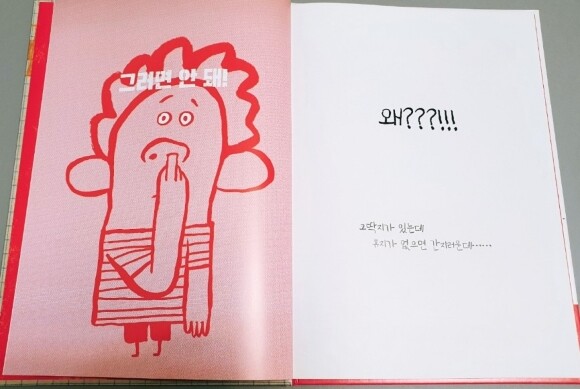 그러면 안 돼!
왜???!!!
코딱지가 있는데
휴지가 없으면 간지러운데......